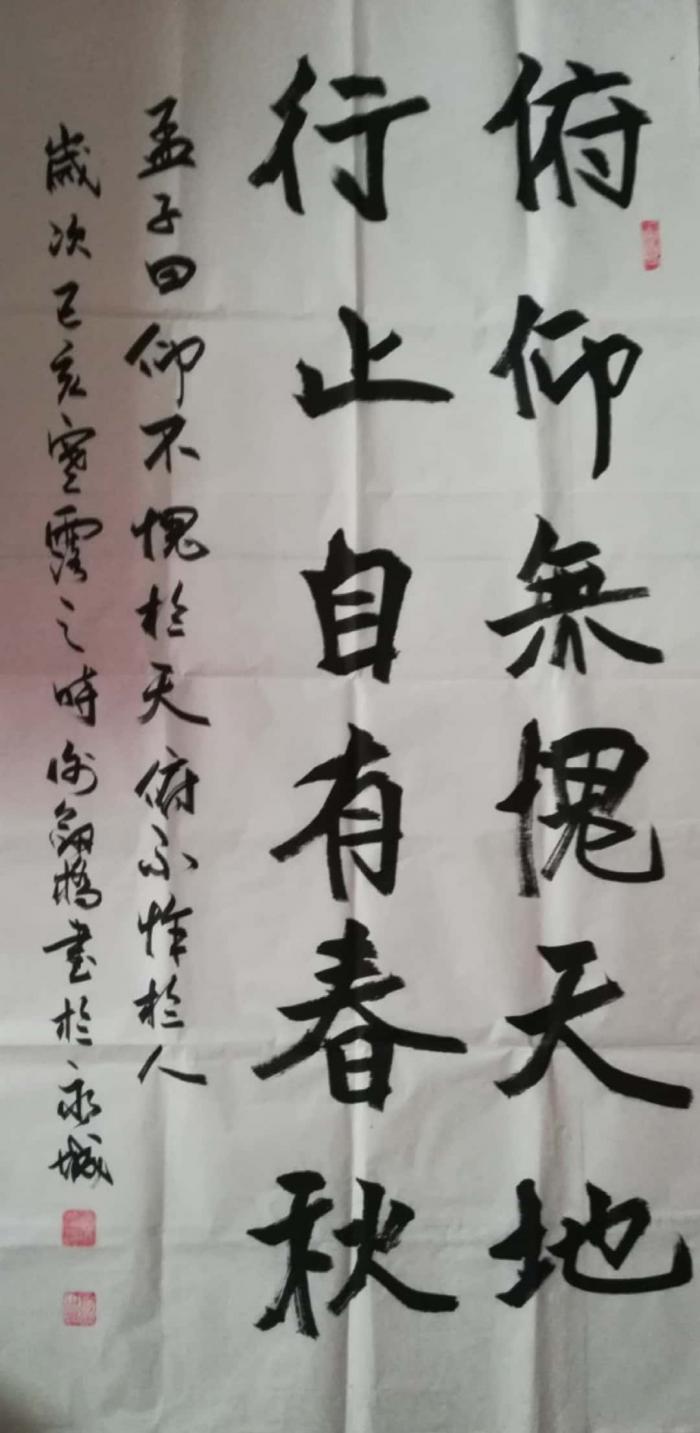 俯仰無愧天地
行止自有春秋
孟子曰仰不愧於天俯不怍於人
歲次己亥寒露之時谢劍橋書於永城